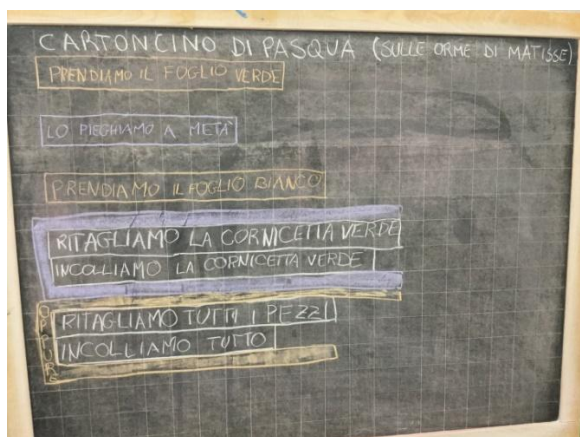 CARTONCINO DI PASQUA (SULLE ORME DI MATISSE)
PRENDIAMO IL FOGLIO VERDE
LO PIEGHIAMO A METÀ
PRENDIAMO IL FOGLIO BIANCO
RITAGLIAMO LA CORNICETTA VERDE
INCOLLIAMO LA CORNICETTA VERDE
OPPURE
RITAGLIAMO TUTTI I PEZZI
INCOLLIAMO TUTTO